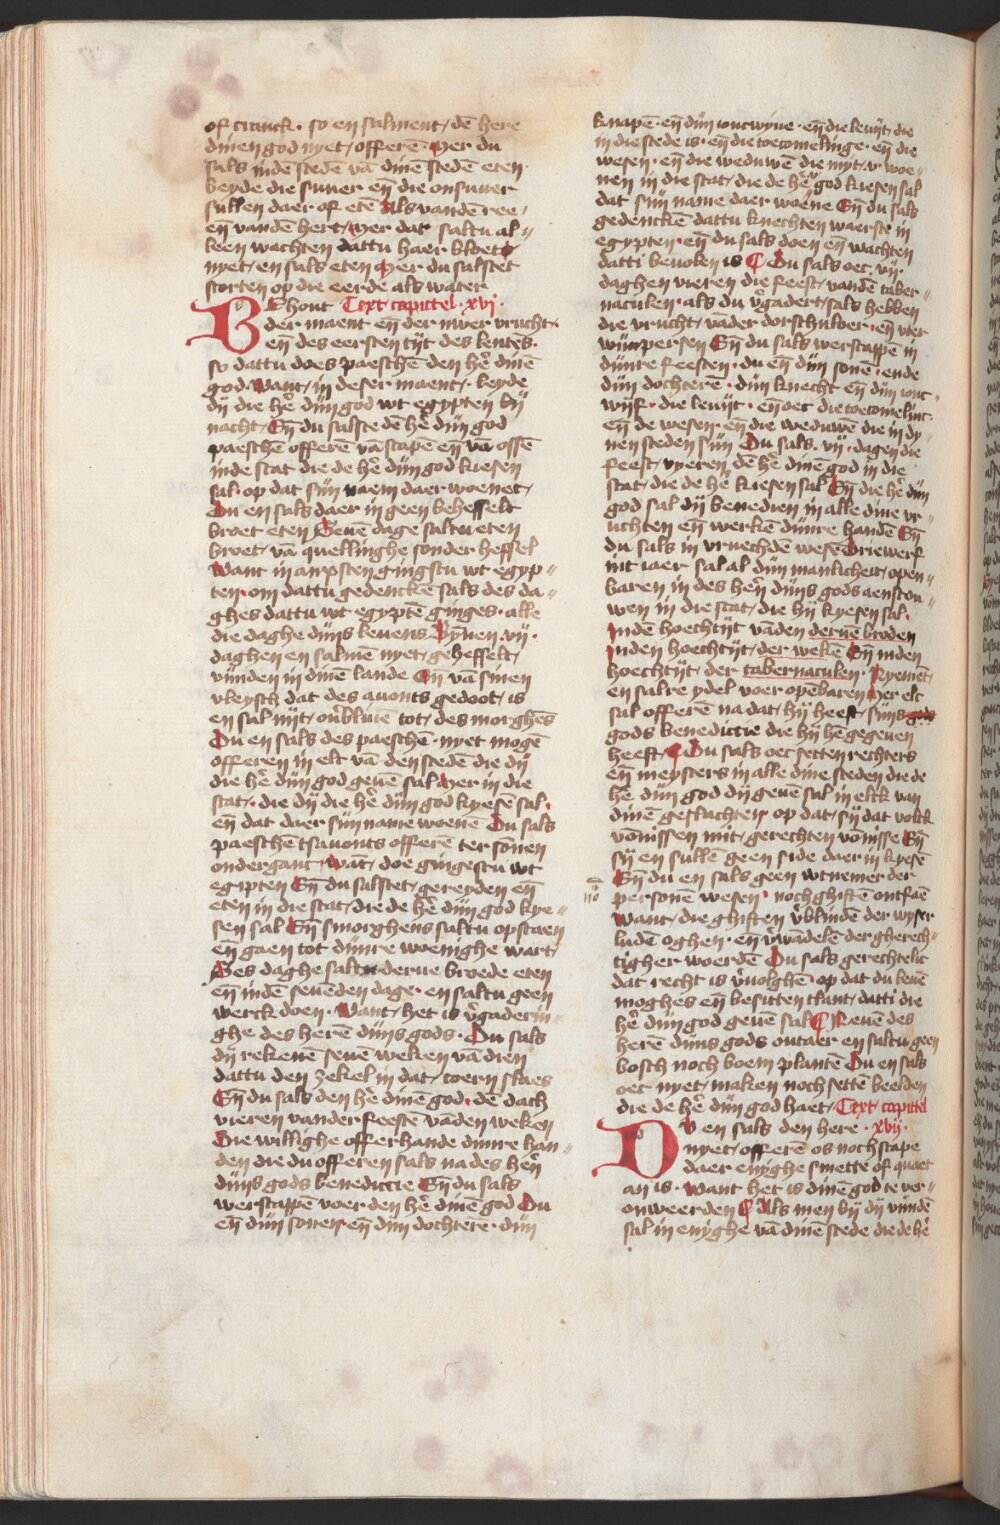 of cranck · so en salment / dē here
dinen god nyet / offerē · Mer du
sals indē stedē vā dinē stedē eten ·
beyde die suuer eñ die onsuuer
sullen daer of etē Als vandē ree /
eñ vandē hert / Mer dat saltu al„
leen wachten dattu haer bloets
nyet / en sals eten Mer du salstet
storten op die eerde als water
BEhout Text capittel · xvi ·
der maent eñ der nwer vrucht ·
eñ des eersten tijt des lentēs ·
so dattu does paeschē den hē dinē
god · Want / in deser maent / · leyde
dij die hē dijn god wt egypten bij
nacht / Eñ du salste dē hē dijn god
paeschē offerē vā scapē eñ vā ossē
inde stat die de hē dijn god kiesen
sal · op dat sijn naem daer woenet /
Du en sals daer in geen beheffelt
broet eten Seuē dage saltu eten
broet / vā quellinghe sonder heffel
Want in anxsten gingstu wt egyp„
ten · om dattu gedenckē sals des da„
ghes dattu wt egyptē ginges · alle
die daghe dijns leuens Bynnen · vij ·
daghen en salmē nyet / geheffelt /
vijnden in dinē lande Eñ vā sinen
vleysch dat des auonts gedoot / is
en sal nijt / ou̓bliuē tot / des morghēs
Du en sals des paeschē · nyet mogē
offeren in elc vā den stedē die dij
die hē dijn god geuē sal Mer in die
stat / · die dij die hē dijn god kyesē sal ·
eñ dat daer sijn name woenē Du sals
paeschē tsauonts offerē ter sōnen
ondergant / Wāt / doe gingestu wt
egipten Eñ du salstet / gereyden eñ
eten in die stat / die de hē dijn god kye„
sen sal Eñ smorghens saltu opstaen
eñ gaen tot dijnre woenighe wart /
Ses daghe saltu derue broede eten
eñ indē seuēden dage · en saltu geen
werck doen · Want / het is v̓gaderin„
ghe des herē dijns gods · Du sals
dij rekenē seuē weken vā dien
dattu den zekel in dat / coern slaes
Eñ du sals den hē dinē god · dē dach
vieren vander feestē vāden weken
Die willighe offerhande dijnre han„
den die du offeren sals na des hēn
dijns gods benedictie Eñ du sals
werscappē voer den hē dinē god Du
eñ dijn sonen · eñ dijn dochterē · dijn
knapē · eñ dijn ioncwijue · eñ die leuijt / die
in die stede is · eñ die toecomelinge · eñ die
wesen · eñ die weduwē die myt / v woe„
nen in die stat / die de hē god kiesen sal
dat sijn name daer woēne Eñ du sals
gedenckē dattu knechten waerste in
egypten · eñ du sals doen eñ wachten
datti beuolen is Du sals oec · vij ·
daghen vieren die feest / vandē taber„
naculen · als du v̓gadert / sals hebben
die vrucht / vāder dorschuloer · eñ vter
wijnpersen Eñ du sals werscappē in
dijnre feesten · du eñ dijn sonē · ende
dijn dochterē · dijn knecht eñ dijn ionc„
wijf · die leuijt · eñ oec die toecomelinc ·
eñ de wesen · eñ die weduwē die in dy„
nen steden sijn Du sals · vij · dagen die
feest / vyeren dē hē dinē god in die
stat / die de hē kiesen sal Eñ die hē dijn
god sal dij benedien in alle dine vr„
uchten eñ werkē dijnre handē Eñ
du sals in vruechdē wesē Driewerf
int iaer sal al dijn manlicheit / open„
baren in des hēn dijns gods aenscou„
wen in die stat / die hij kyesen sal ·
Indē hoechtijt vāden deruē broden
Inden hoechtijt / der wekē Eñ inden
hoechtijt / der tabernaculen · Nyemēt /
en salre ydel voer opēbaren Mer elc
sal offerē na dat / hij heeft / sijns gods
gods benedictie die hij hē gegeuen
heeft · Du sals oec setten rechters
eñ meysters in alle dine steden die de
hē dijn god dij geuē sal in elck van
dinē geslachten op dat / sij dat volck
vōnissen mit / gerechten vōnisse Eñ
sij en sullē geen side daer in kyesē
Eñ du en sals geen wtnemer der
personē wesen · noch ghiftē ontfaē
Want / die ghiften v̓blindē der wyser
ludē oghen · eñ v̓wādelē der gherech„
tigher woerdē Du sals gerechtelic
dat recht is v̓uolghē · op dat du leuē
moghes eñ besitten tlant / datti die
hē dijn god geuē sal Neuē des
herē dijns gods outaer en saltu geen
bosch noch boem plantē Du en sals
oec nyet / maken noch settē beelden
die de hē dijn god haet / Text capittel
DV en sals den here · xvij ·
nyet / offerē os noch scape
daer enighe smette of quaet
an is · Want het is dinē god te ver„
onweerden Als men bij dij vijndē
sal in enighe vā dinē stede die de hē